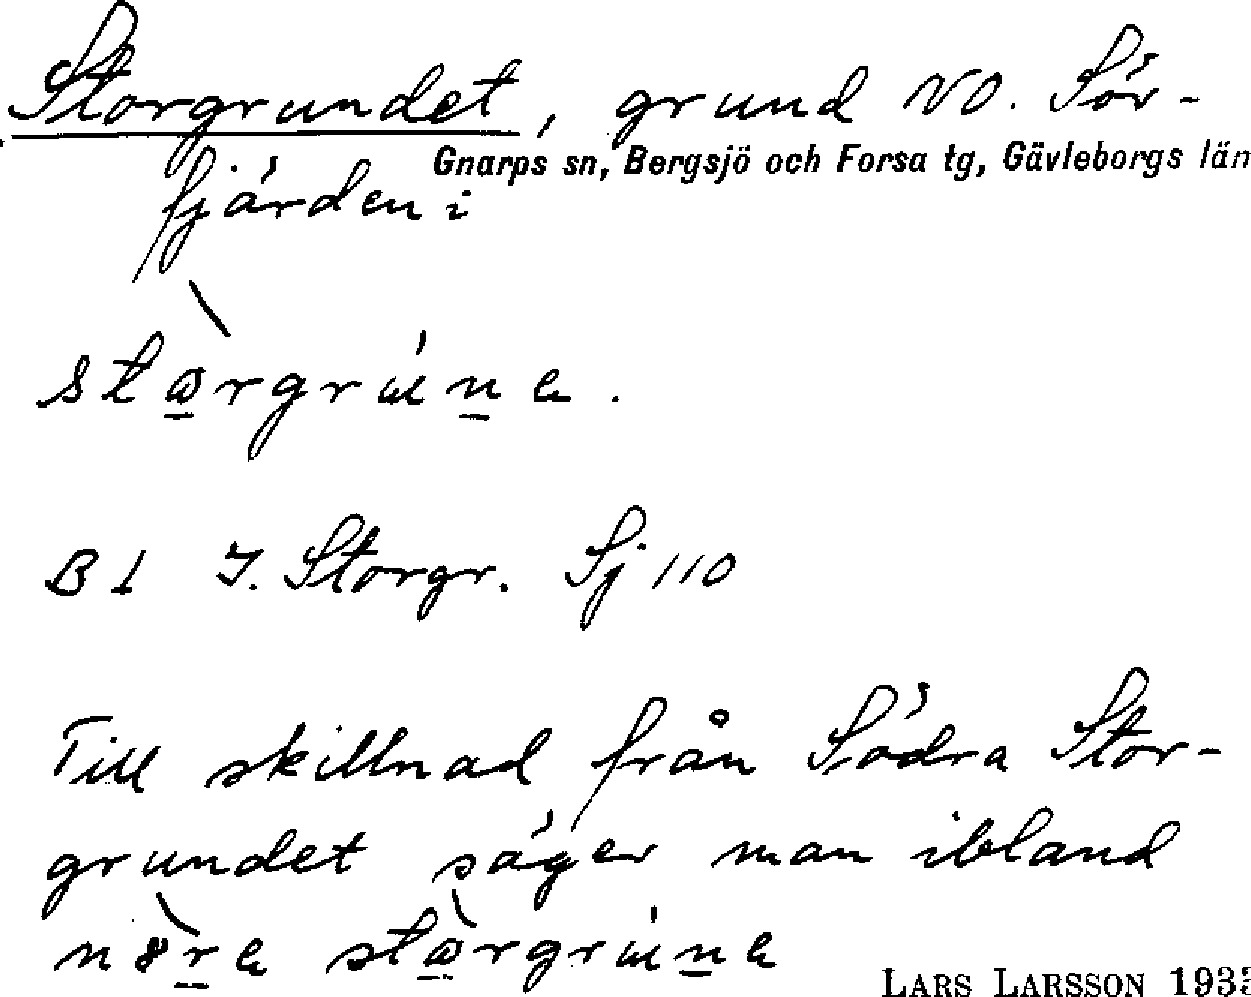 Storgrundet, grund NO. Sör-
Gnarps sn, Bergsjö och Forsa tg, Gävleborgs län
fjärden i
Bl J. Storgr. Sj 110
Till skillnad från Södra Stor-
grundet säger man ibland
LARS LARSSON 193